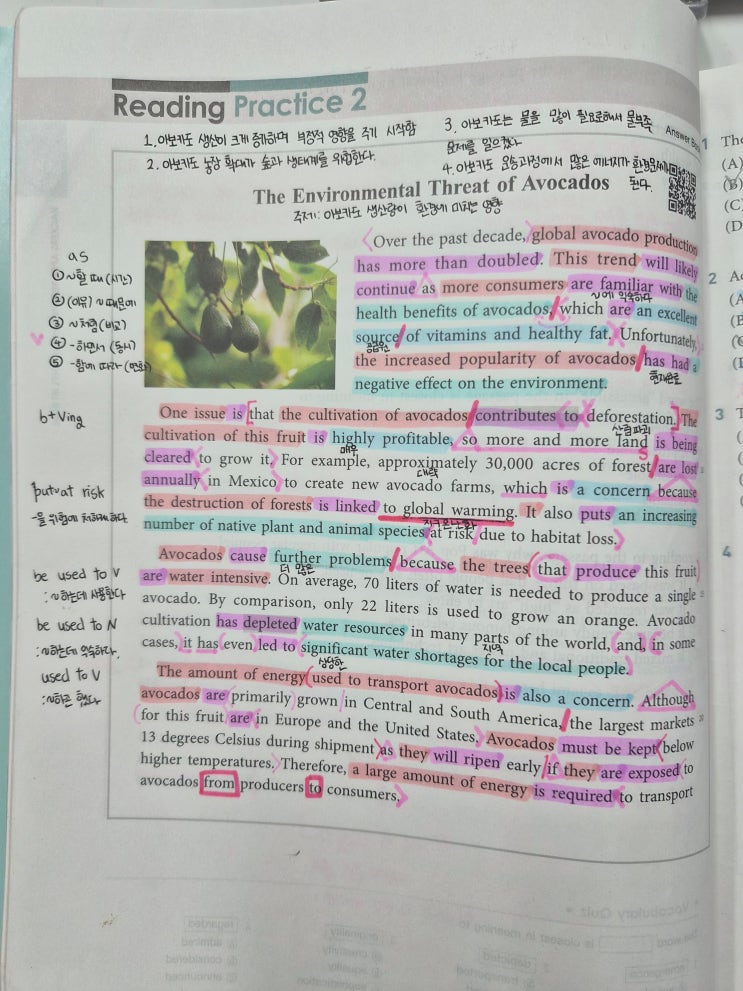 Reading Practice 2
1. 아보카도 생산이 크게 증가하며 부정적 영향을 주기 시작함
2. 아보카도 농장 확대가 숲과 생태계를 위협한다.
3. 아보카도는 물을 많이 필요로해서 물부족
문제를 일으켰다
4. 아보카도 운송과정에서 많은 에너지가 환경문제가
된다.
Answer
The Environmental Threat of Avocados
주제: 아보카도 생산량이 환경에 미치는 영향
Over the past decade, global avocado production
has more than doubled. This trend will likely
continue as more consumers are familiar with the
~에 익숙하다
health benefits of avocados, which are an excellent
source of vitamins and healthy fat. Unfortunately,
공급원
the increased popularity of avocados has had a
현재완료
negative effect on the environment.
as
① ~할 때 (시간)
② (이유) ~ 때문에
③ ~처럼 (비교)
④ ~하면서 (동시)
⑤ ~함에 따라 (변화)
One issue is that the cultivation of avocados contributes to deforestation. The
산림파괴
cultivation of this fruit is highly profitable, so more and more land is being
매우
cleared to grow it. For example, approximately 30,000 acres of forest are lost
대략
annually in Mexico to create new avocado farms, which is a concern because
the destruction of forests is linked to global warming. It also puts an increasing
지구온난화
number of native plant and animal species at risk due to habitat loss.
b+Ving
put~at risk
~을 위험에 처하게 하다.
Avocados cause further problems because the trees that produce this fruit
더 많은
are water intensive. On average, 70 liters of water is needed to produce a single
avocado. By comparison, only 22 liters is used to grow an orange. Avocado
cultivation has depleted water resources in many parts of the world, and, in some
지역
cases, it has even led to significant water shortages for the local people.
상당한
be used to V
: ~하는데 사용한다
be used to N
: ~하는데 익숙하다.
used to V
: ~하곤 했다
The amount of energy used to transport avocados is also a concern. Although
avocados are primarily grown in Central and South America, the largest markets
for this fruit are in Europe and the United States. Avocados must be kept below
13 degrees Celsius during shipment as they will ripen early if they are exposed to
higher temperatures. Therefore, a large amount of energy is required to transport
avocados from producers to consumers.
5
10
15
20
1 The
(A)
(B)
(C)
(D
2 A
(A
(B
3 T
4
Vocabulary Quiz
is closest in meaning to